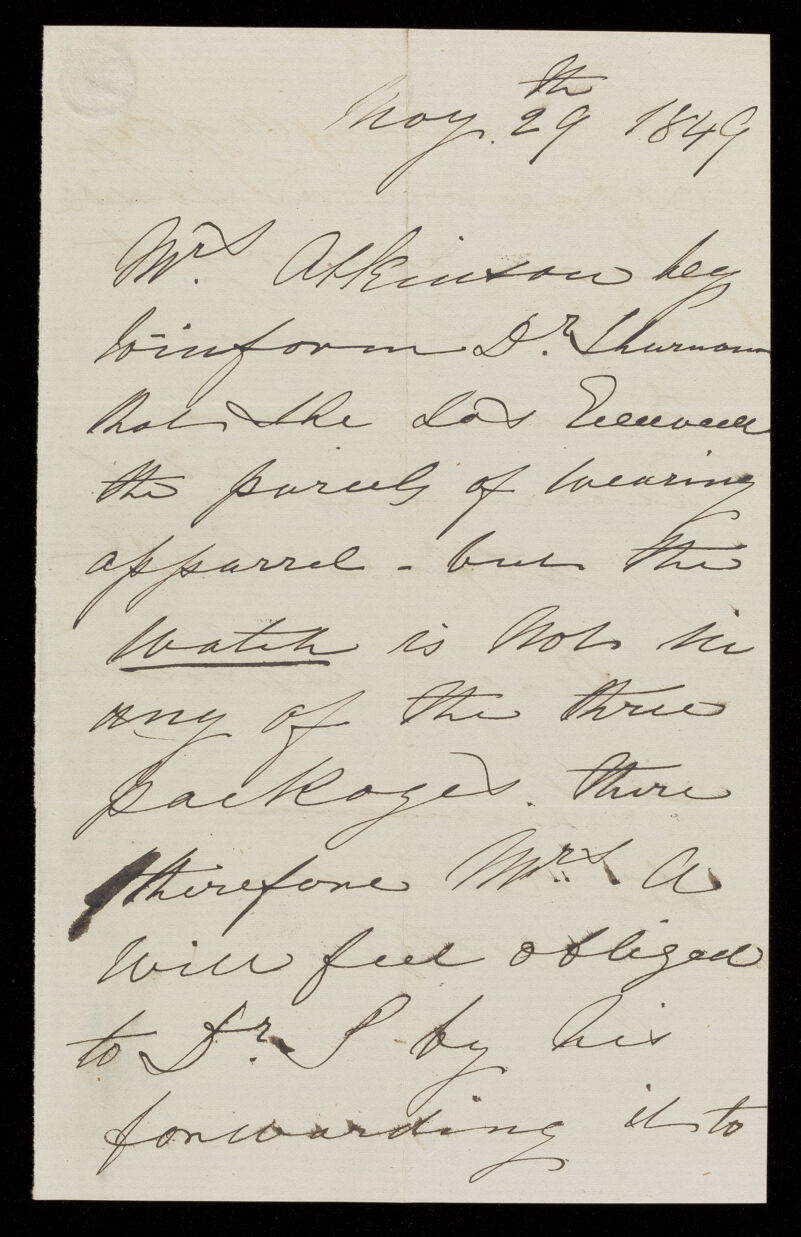 Novr. 29th 1849
Mrs. Atkinson beg
to inform Dr. Thurnam
that she has Received
the parcels of wearing
apparrel - but the
watch is not in
any of the three
packages. there
therefore Mrs. A
will feel obliged
to Dr. T by his
forwarding it to